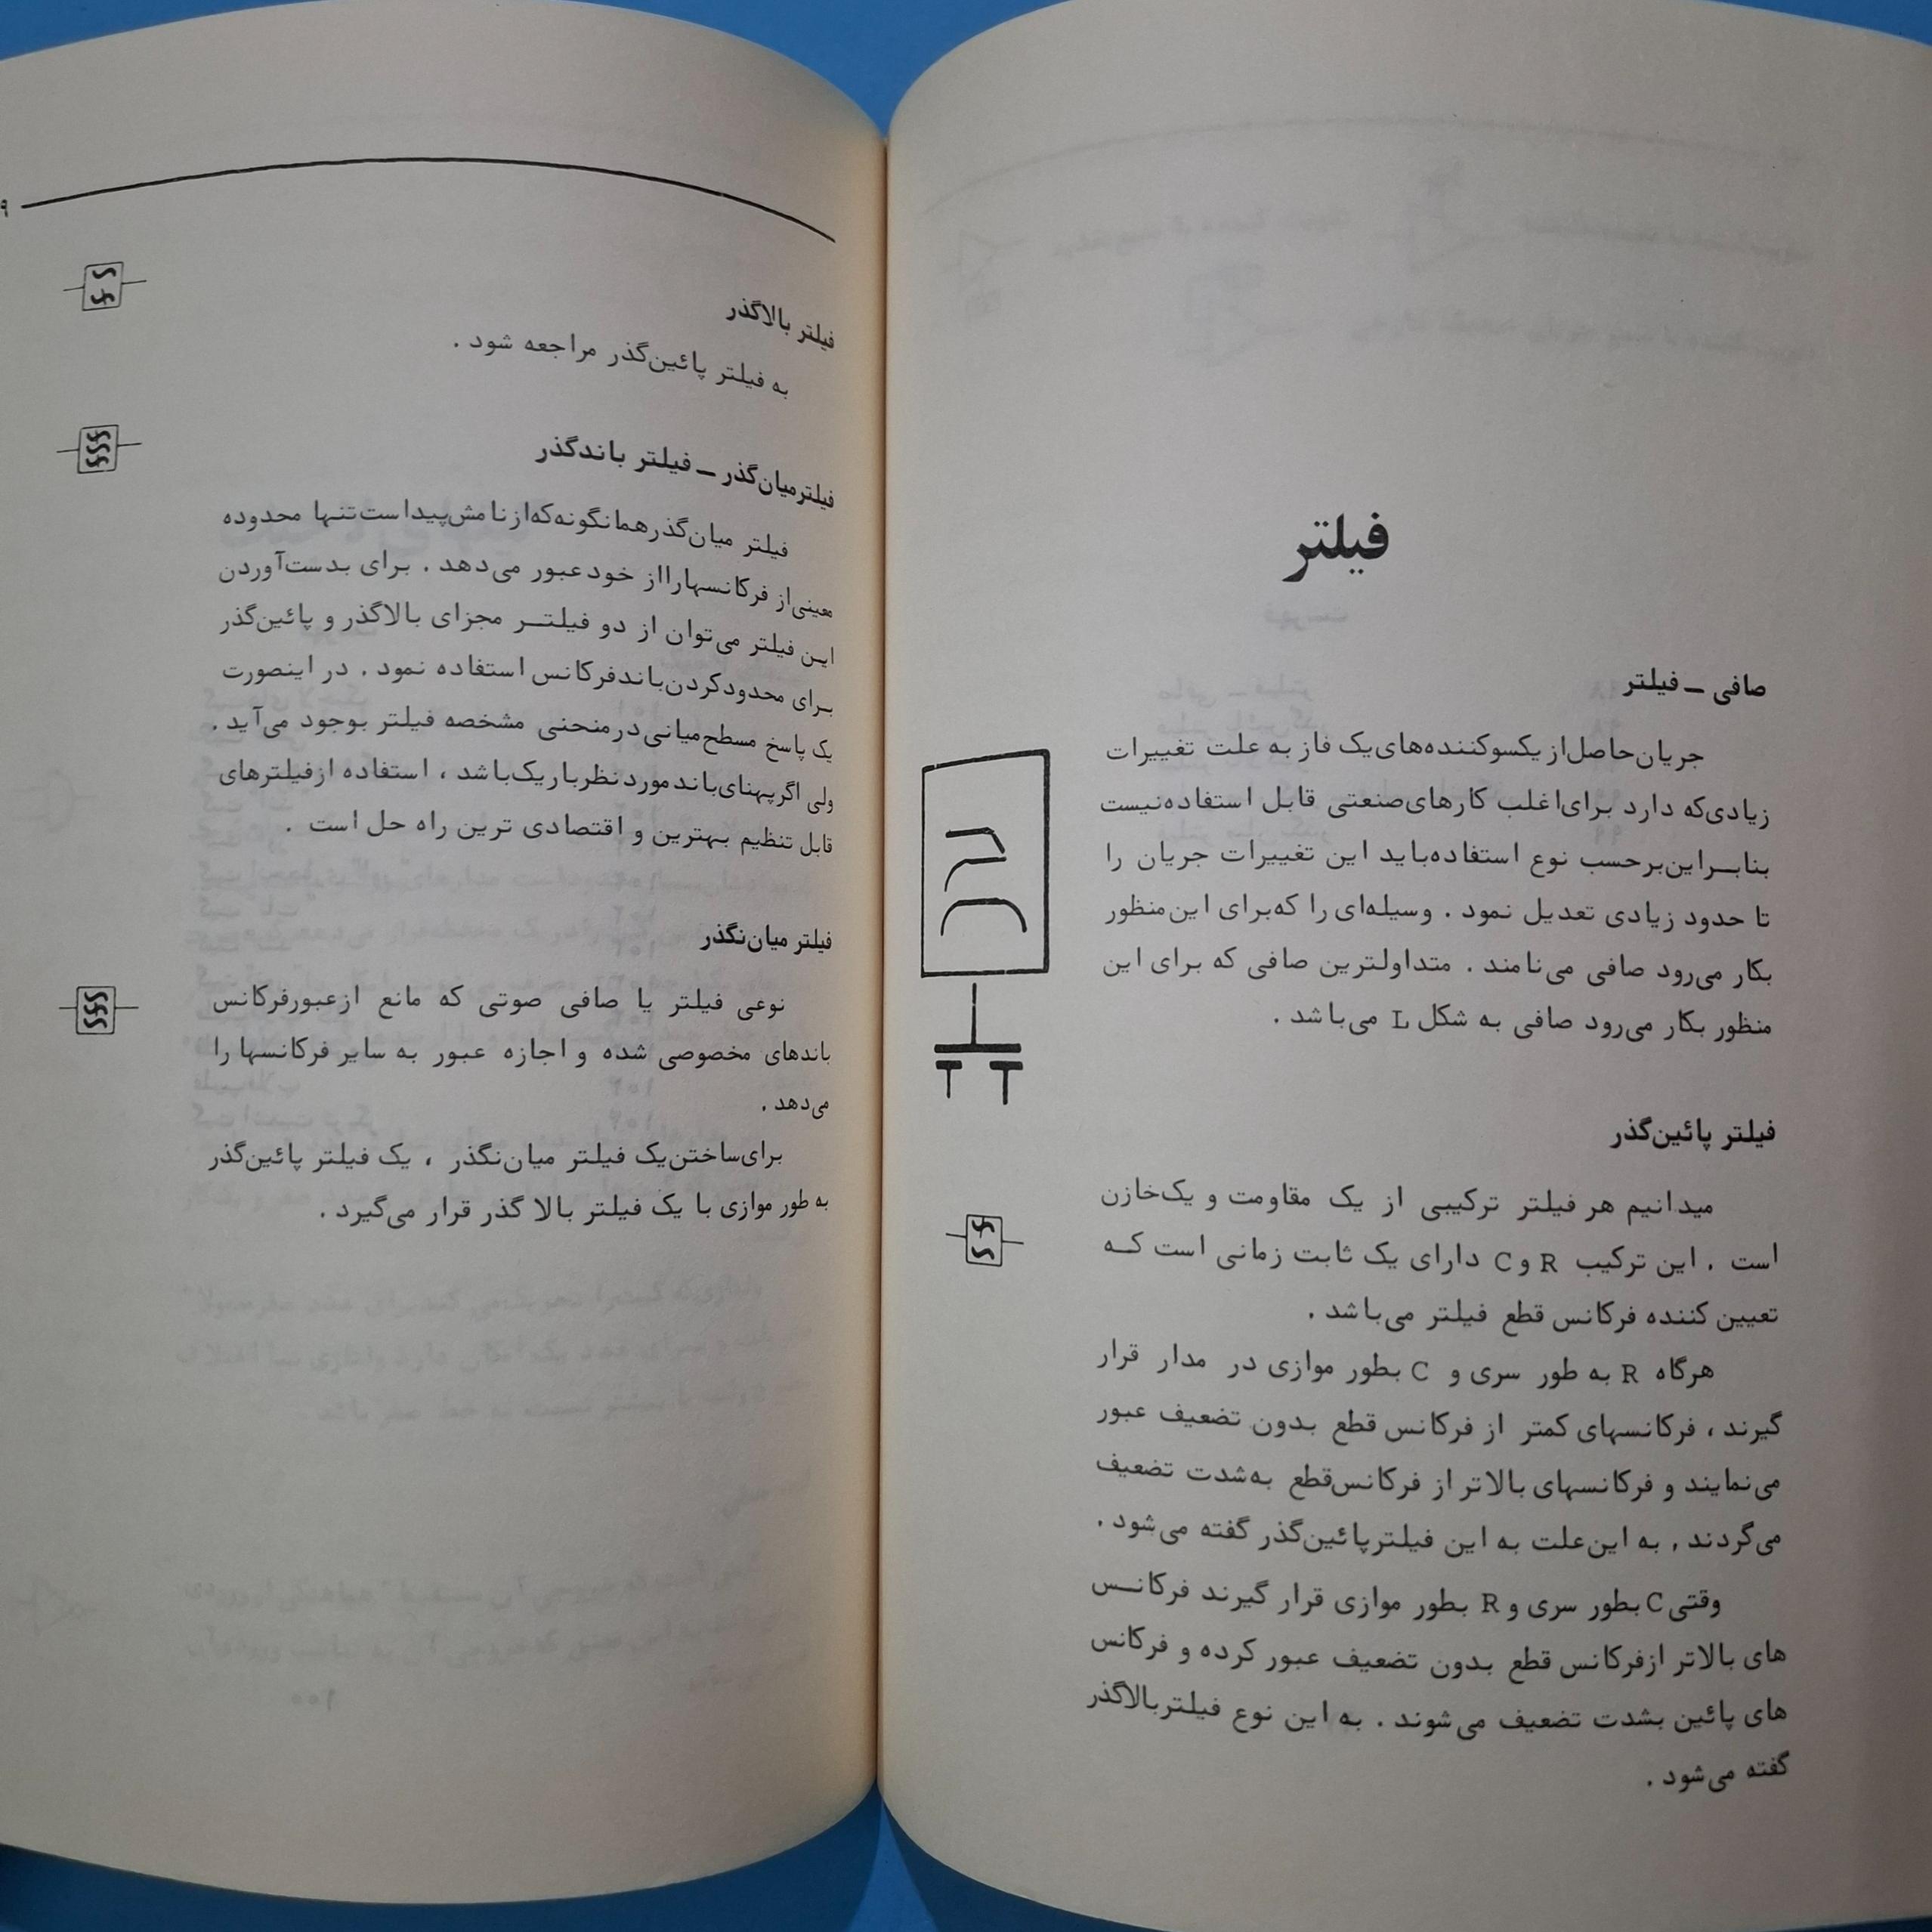 فیلتر
صافی ــ فیلتر
جریان‌حاصل‌از یکسوکننده‌های‌یک فاز به علت تغییرات
زیادی‌که دارد برای‌اغلب کارهای‌صنعتی قابل استفاده‌نیست
بنابراین‌برحسب نوع استفاده‌باید این تغییرات جریان را
تا حدود زیادی تعدیل نمود . وسیله‌ای را که‌برای این‌منظور
بکار می‌رود صافی می‌نامند . متداولترین صافی که برای این
منظور بکار می‌رود صافی به شکل L می‌باشد .
فیلتر پائین‌گذر
میدانیم هر فیلتر ترکیبی از یک مقاومت و یک‌خازن
است . این ترکیب R و C دارای یک ثابت زمانی است کـه
تعیین کننده فرکانس قطع فیلتر می‌باشد .
هرگاه R به طور سری و C بطور موازی در مدار قرار
گیرند ، فرکانسهای کمتر از فرکانس قطع بدون تضعیف عبور
می‌نمایند و فرکانسهای بالاتر از فرکانس‌قطع به‌شدت تضعیف
می‌گردند , به این‌علت به این فیلترپائین‌گذر گفته می‌شود .
وقتی C بطور سری و R بطور موازی قرار گیرند فرکانــس
های بالاتر ازفرکانس قطع بدون تضعیف عبور کرده و فرکانس
های پائین بشدت تضعیف می‌شوند . به این نوع فیلتربالاگذر
گفته می‌شود .
۹
فیلتر بالاگذر
به فیلتر پائین‌گذر مراجعه شود .
فیلترمیان‌گذر ــ فیلتر باندگذر
فیلتر میان‌گذرهمانگونه‌که‌ازنامش‌پیداست‌تنها محدوده
معینی‌از فرکانسهارااز خودعبور می‌دهد . برای بدست‌آوردن
این فیلتر می‌توان از دو فیلتــر مجزای بالاگذر و پائین‌گذر
برای محدودکردن‌باندفرکانس استفاده نمود . در اینصورت
یک پاسخ مسطح‌میانی‌درمنحنی مشخصه فیلتر بوجود می‌آید .
ولی اگرپهنای‌باندموردنظرباریک‌باشد ، استفاده ازفیلترهای
قابل تنظیم بهترین و اقتصادی ترین راه حل است .
فیلتر میان‌نگذر
نوعی فیلتر یا صافی صوتی که مانع ازعبورفرکانس
باندهای مخصوصی شده و اجازه عبور به سایر فرکانسها را
می‌دهد .
برای‌ساختن‌یک فیلتر میان‌نگذر ، یک فیلتر پائین‌گذر
به طور موازی با یک فیلتر بالا گذر قرار می‌گیرد .